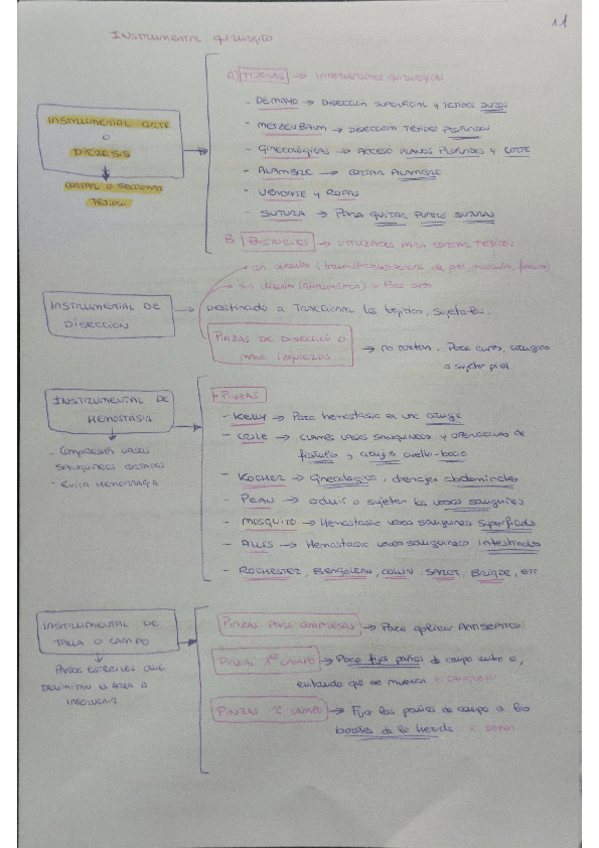 11
INSTRUMENTAL QUIRÚRGICO
INSTRUMENTAL CORTE
O
DIÉRESIS
CORTAR O SECCIONAR
TEJIDOS
A) TIJERAS → Intervenciones quirúrgicas
- DE MAYO → DISECCIÓN SUPERFICIAL Y TEJIDOS DUROS
- METZENBAUM → DISECCIÓN TEJIDOS PROFUNDOS
- Ginecológicas → ACCESO PLANOS PROFUNDOS Y CORTE
- ALAMBRE → CORTAR ALAMBRE
- VENDAJE Y ROPAS
- SUTURA → PARA QUITAR PUNTOS SUTURAS
B. BISTURÍES → UTILIZADOS PARA CORTAR TEJIDOS
→ sin dientes → Para curas
INSTRUMENTAL DE
DISECCIÓN
Destinado a TRACCIONAR los tejidos, sujetarlos.
PINZAS DE DISECCIÓN O
MANO IZQUIERDA
→ no cortan. Para curas, cirugía
o sujetar piel.
INSTRUMENTAL DE
HEMOSTASIA
- Compresión VASOS
SANGUÍNEOS CORTADOS
- Evita HEMORRAGIA
PINZAS
- KELLY → Para hemostasia en una cirugía
- CRILE → CLAMPS VASOS SANGUÍNEOS y operaciones de
fístulas y cirugía cuello-boca
- KOCHER → Ginecológica, drenajes abdominales
- PEAN → ocluir o sujetar los vasos sanguíneos
- MOSQUITO → Hemostasia vasos sanguíneos superficiales
- ALLIS → Hemostasia vasos sanguíneos intestinales
- ROCHESTER, BENGOLEA, COLLIN, SAROT, , etc
INSTRUMENTAL DE
TALLA O CAMPO
PAÑOS ESTÉRILES QUE
DELIMITAN EL ÁREA A
INTERVENIR
PINZAS PARA COMPRESAS → Para aplicar ANTISÉPTICO
PINZAS 1º CAMPO → Para fijar paños de campo entre sí,
evitando que se muevan CANGREJO
PINZAS 2º CAMPO → Fijar los paños de campo a los
bordes de la herida